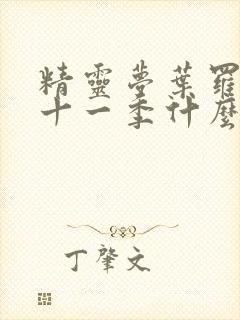 精靈夢葉羅
十一季什麼
丁肇文